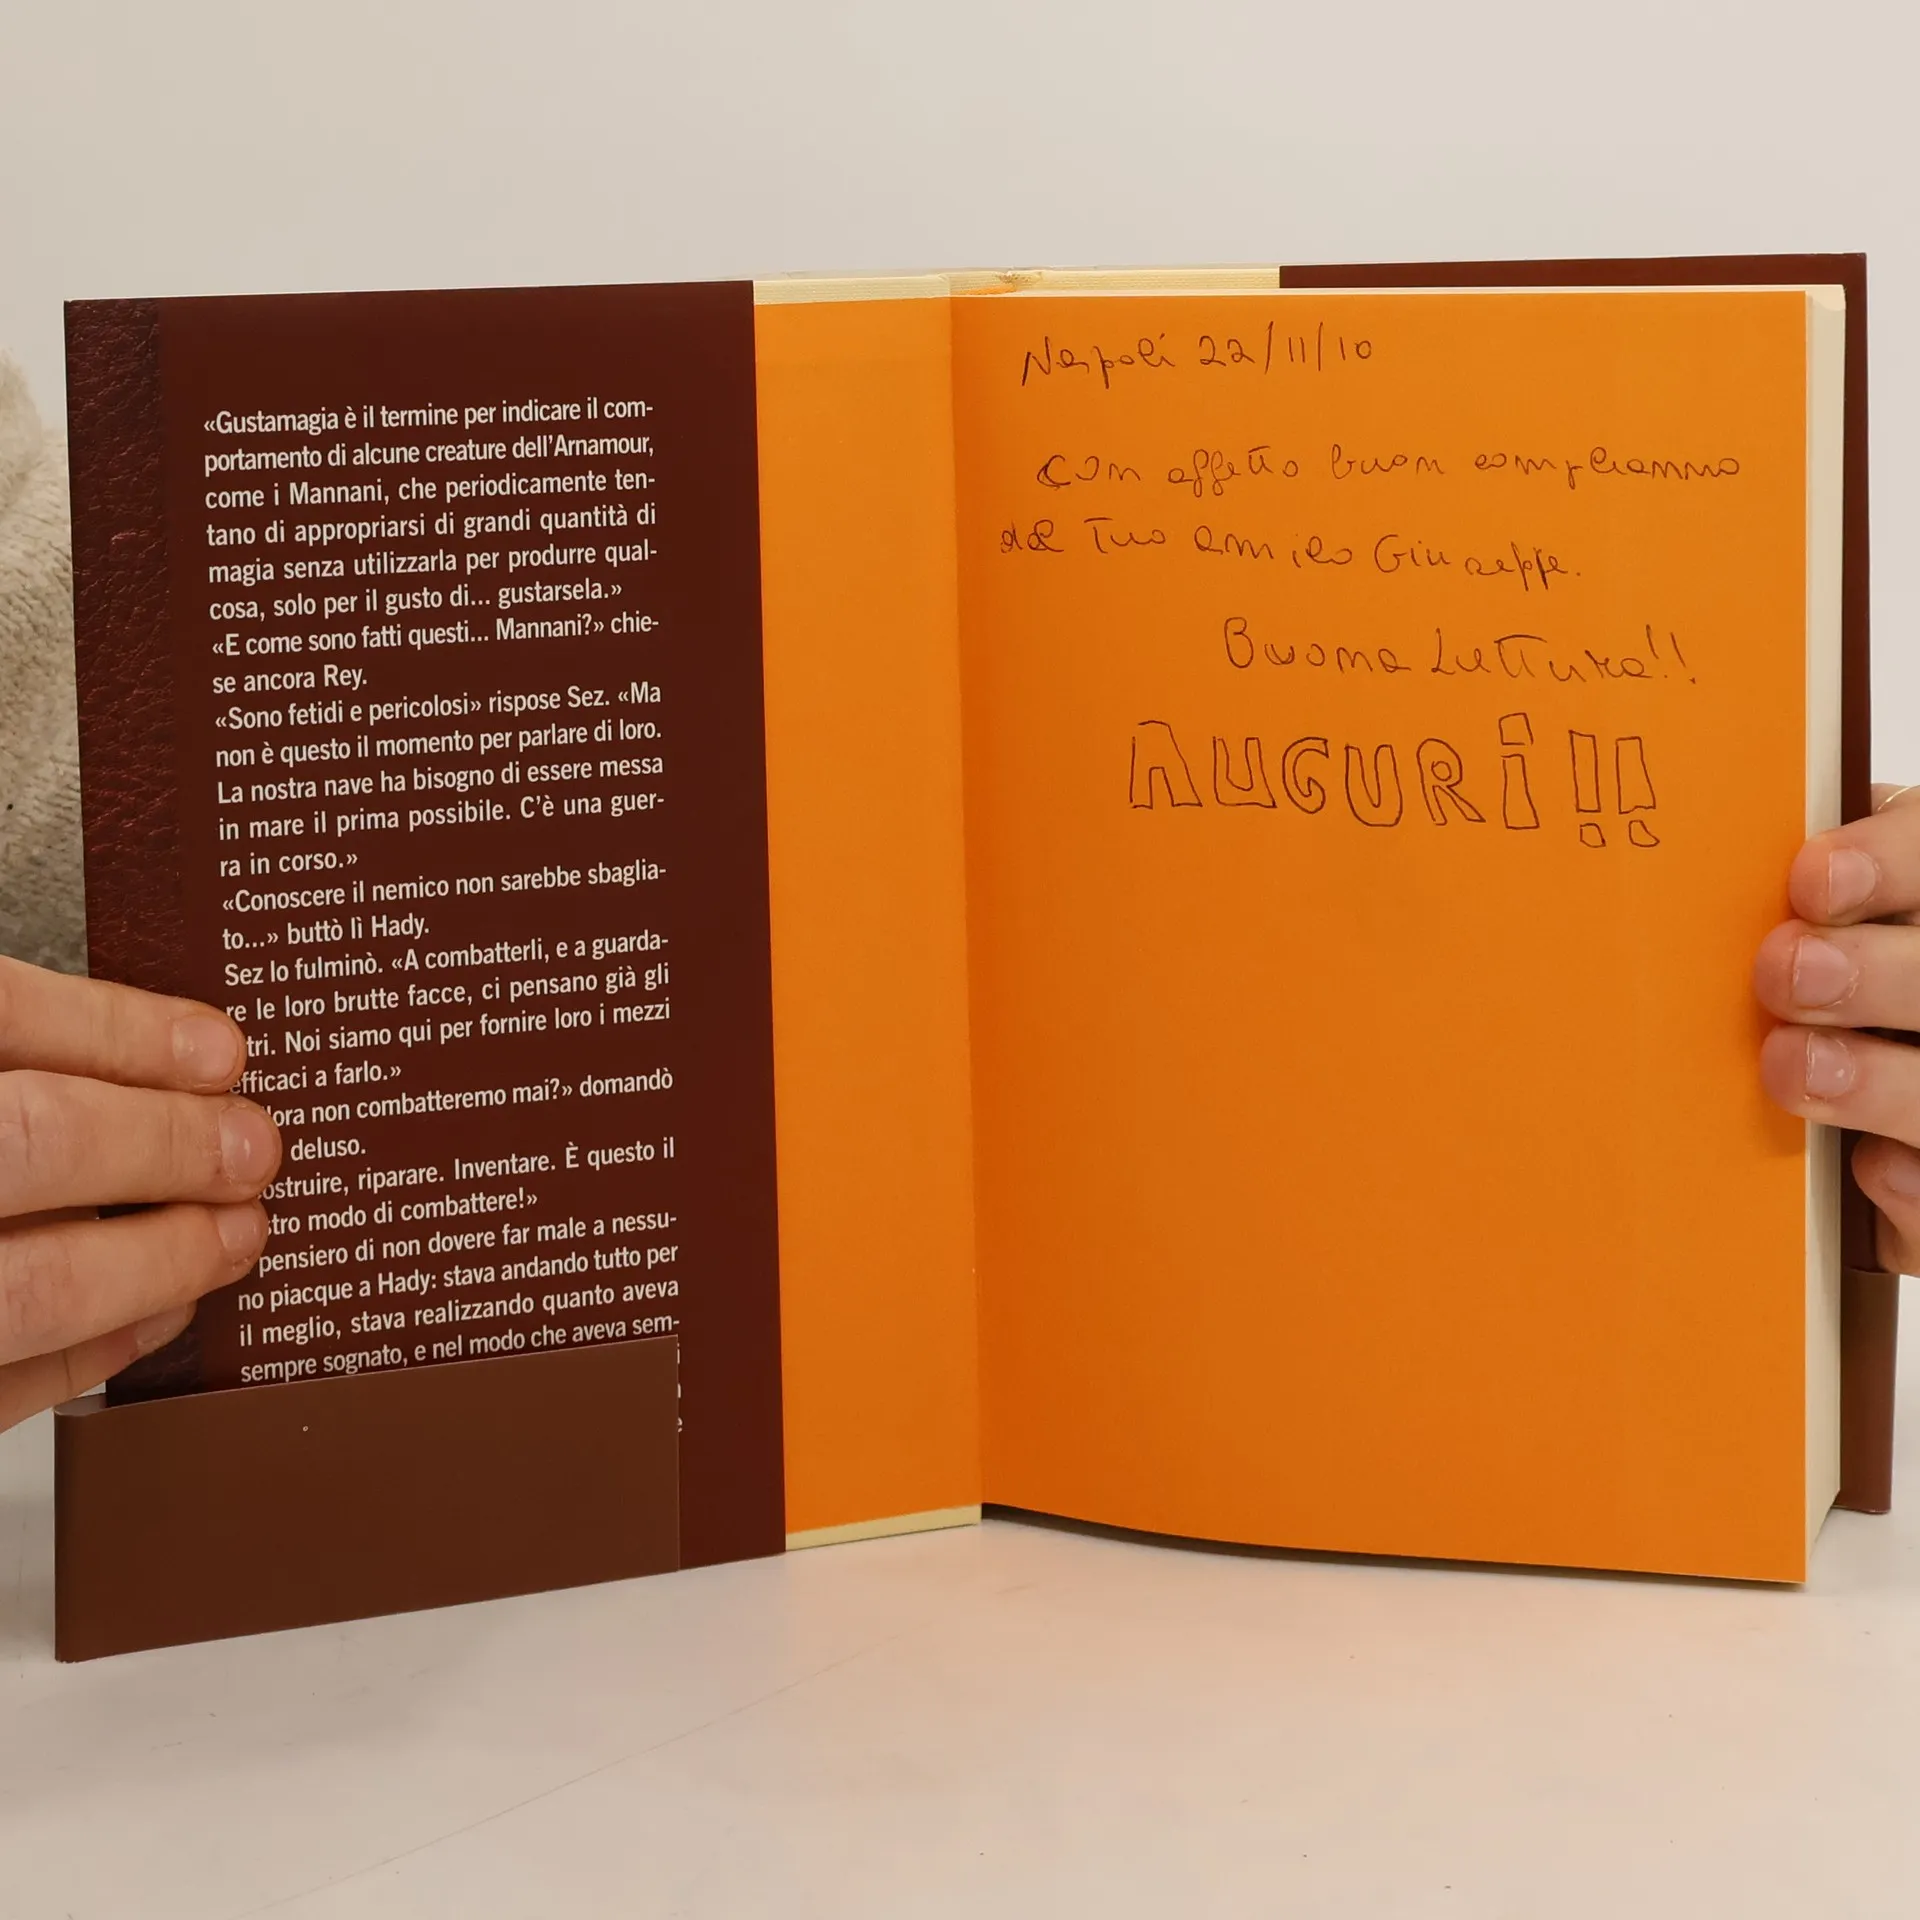 «Gustamagia è il termine per indicare il com-
portamento di alcune creature dell'Arnamour,
come i Mannani, che periodicamente ten-
tano di appropriarsi di grandi quantità di
magia senza utilizzarla per produrre qual-
cosa, solo per il gusto di... gustarsela.»
«E come sono fatti questi... Mannani?» chie-
se ancora Rey.
«Sono fetidi e pericolosi» rispose Sez. «Ma
non è questo il momento per parlare di loro.
La nostra nave ha bisogno di essere messa
in mare il prima possibile. C'è una guer-
ra in corso.»
«Conoscere il nemico non sarebbe sbaglia-
to...» buttò lì Hady.
Sez lo fulminò. «A combatterli, e a guarda-
re le loro brutte facce, ci pensano già gli
tri. Noi siamo qui per fornire loro i mezzi
efficaci a farlo.»
lora non combatteremo mai?» domandò
deluso.
ostruire, riparare. Inventare. È questo il
stro modo di combattere!»
pensiero di non dovere far male a nessu-
no piacque a Hady: stava andando tutto per
il meglio, stava realizzando quanto aveva
sempre sognato, e nel modo che aveva sem-
Napoli 22/11/10
Con affetto buon compleanno
dal Tuo amico Giuseppe.
Buona Lettura!!
AUGURI!!